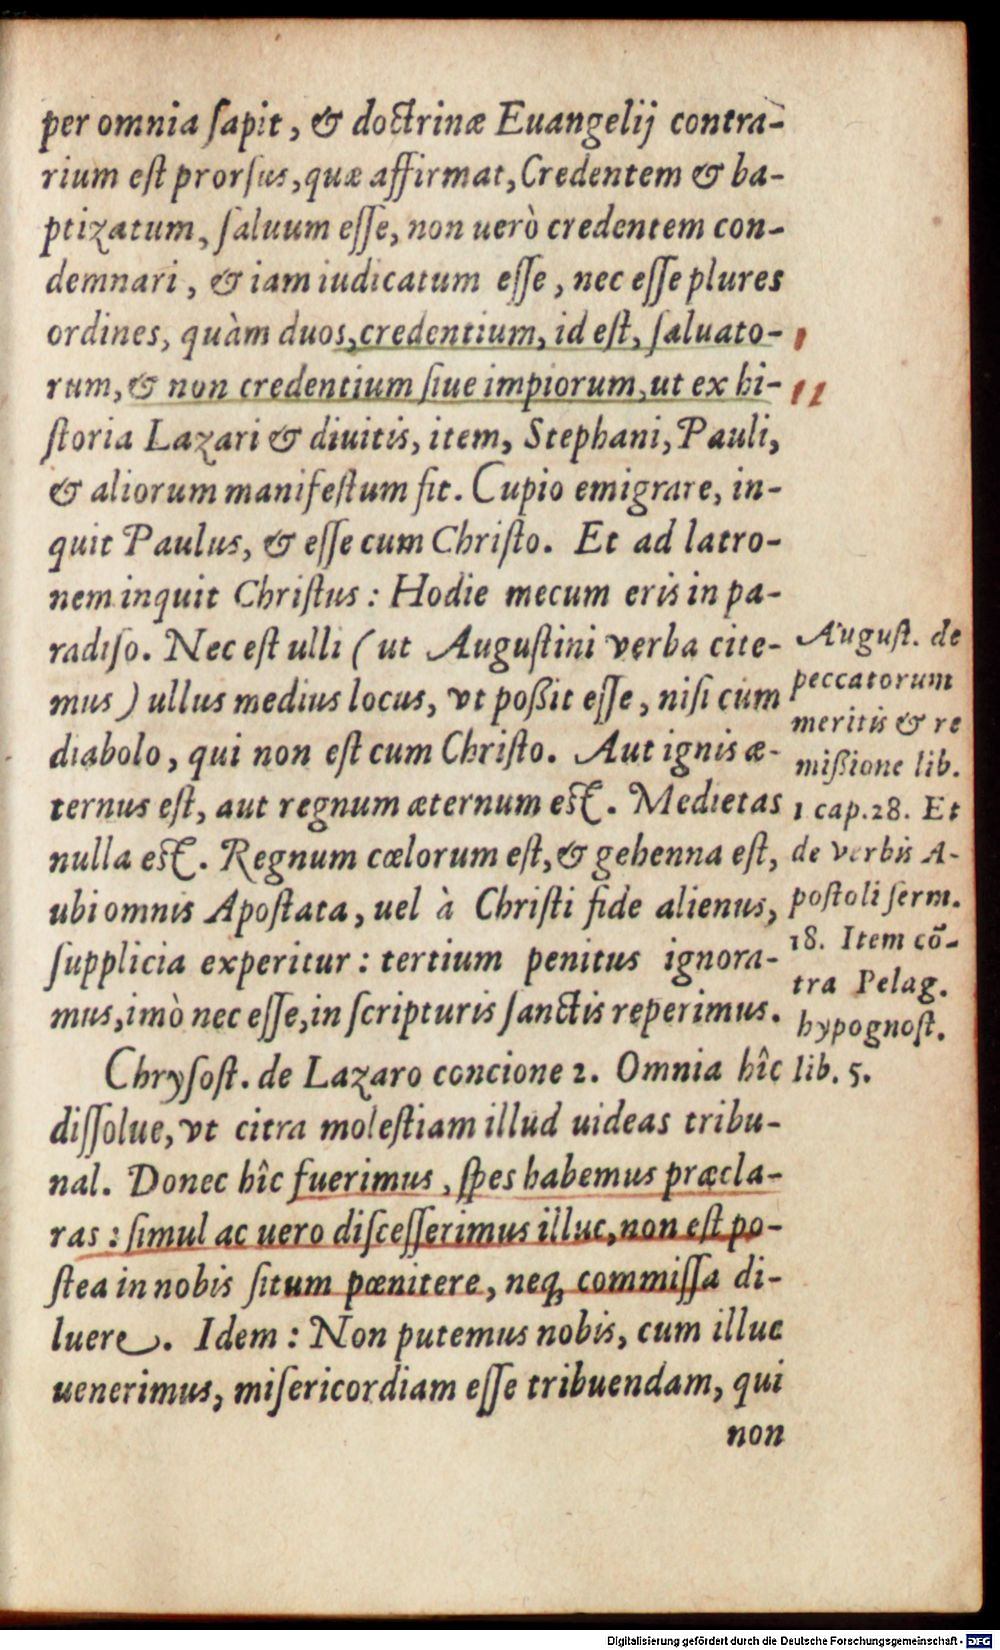 per omnia ſapit, & doctrinæ Euangelij contra-
rium eſt prorſus, quæ affirmat, Credentem & ba-
ptizatum, ſaluum eſſe, non uerò credentem con-
demnari, & iam iudicatum eſſe, nec eſſe plures
ordines, quàm duos, credentium, id eſt, ſaluato-
rum, & non credentium ſiue impiorum, ut ex hi-
ſtoria Lazari & diuitis, item, Stephani, Pauli,
& aliorum manifeſtum fit. Cupio emigrare, in-
quit Paulus, & eſſe cum Chriſto. Et ad latro-
nem inquit Chriſtus: Hodie mecum eris in pa-
radiſo. Nec eſt ulli (ut Auguſtini verba cite-
mus) ullus medius locus, vt poßit eſſe, niſi cum
diabolo, qui non eſt cum Chriſto. Aut ignis æ-
ternus eſt, aut regnum æternum eſt. Medietas
nulla eſt. Regnum cœlorum eſt, & gehenna eſt,
ubi omnis Apoſtata, uel à Chriſti fide alienus,
ſupplicia experitur: tertium penitus ignora-
mus, imò nec eſſe, in ſcripturis ſanctis reperimus.
Chryſoſt. de Lazaro concione 2. Omnia hîc
diſſolue, vt citra moleſtiam illud uideas tribu-
nal. Donec hîc fuerimus, ſpes habemus præcla-
ras: ſimul ac uero diſceſſerimus illuc, non eſt po-
ſtea in nobis ſitum pœnitere, neq; commiſſa di-
luere. Idem: Non putemus nobis, cum illuc
uenerimus, miſericordiam eſſe tribuendam, qui
non
Auguſt. de
peccatorum
meritis & re
mißione lib.
1 cap. 28. Et
de verbis A-
poſtoli ſerm.
18. Item cō-
tra Pelag.
hypognoſt.
lib. 5.
Digitalisierung gefördert durch die Deutsche Forschungsgemeinschaft - DFG